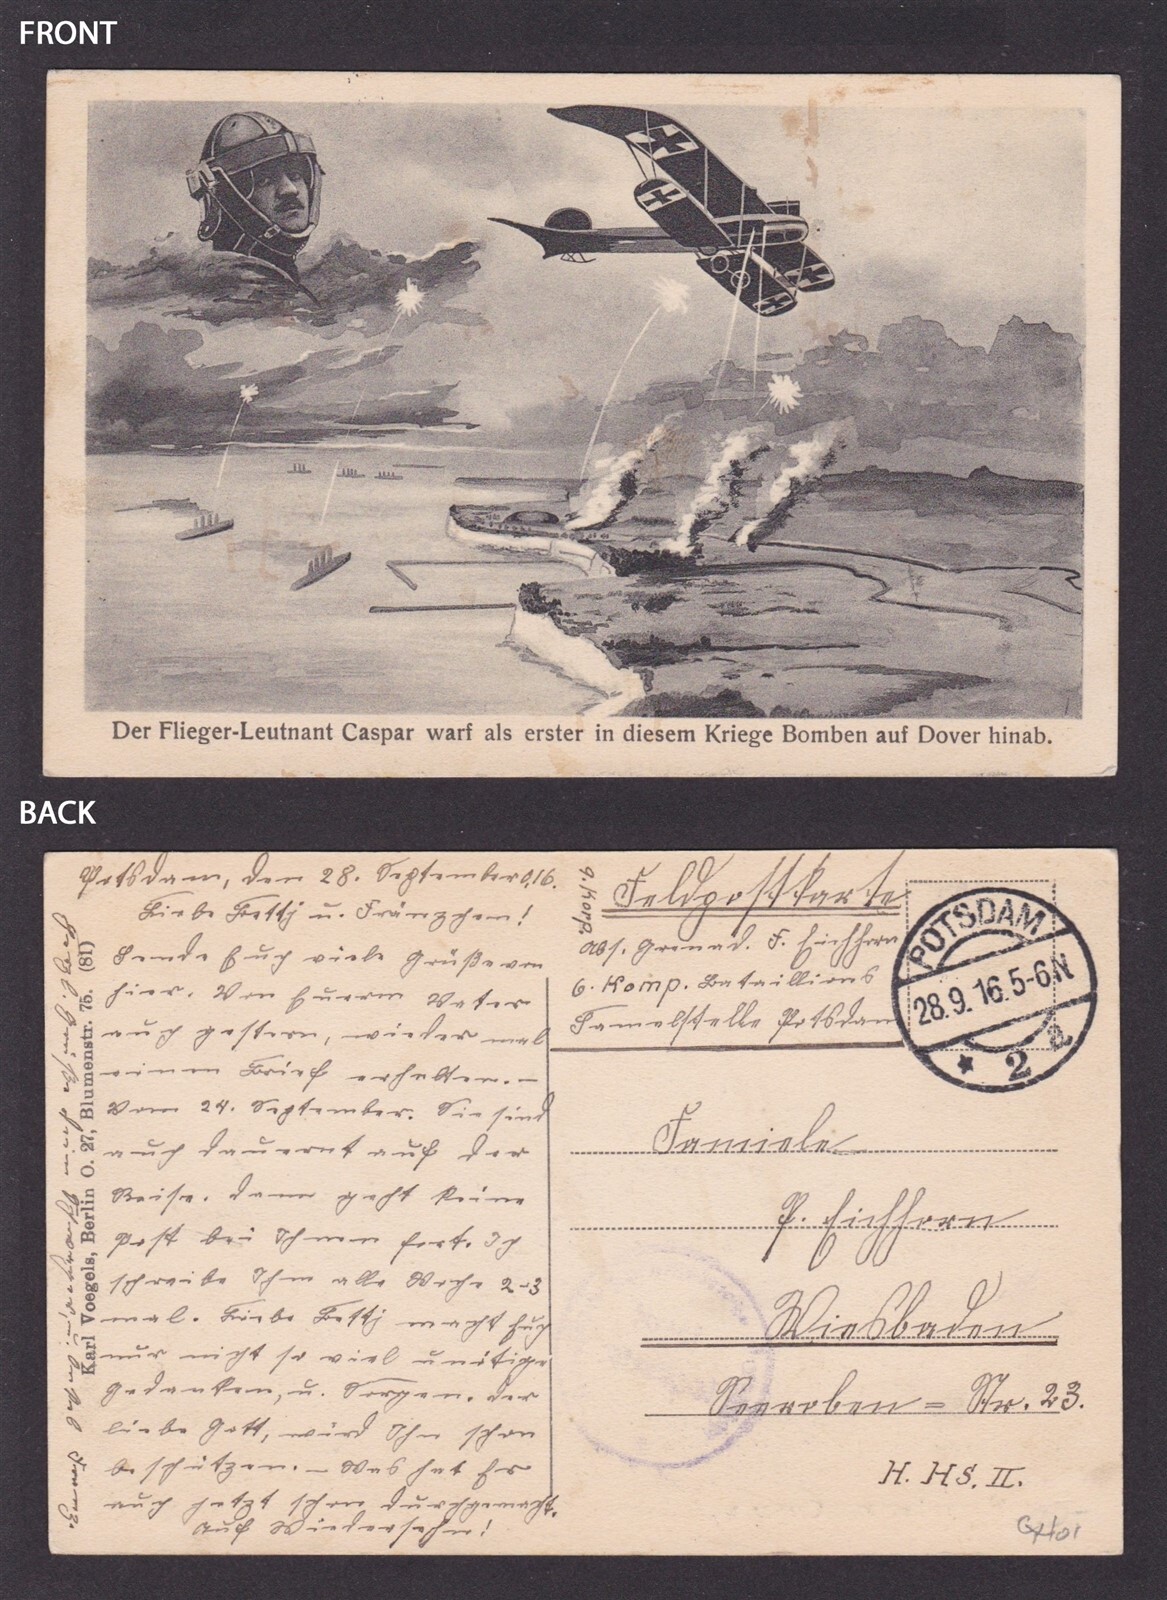 FRONT
Der Flieger-Leutnant Caspar warf als erster in diesem Kriege Bomben auf Dover hinab.
BACK
Potsdam, den 28. September 016.
Liebe Betty u. Fränzchen!
Sende Euch viele Grüße von
hier. Von Euerm Vater
auch gestern, wieder mal
einen Brief erhalten. –
Vom 24. September. Sie sind
auch dauernt auf der
Reise. dann geht keine
Post bei Ihnen fort. Ich
schreibe Ihm alle Woche 2-3
mal. Liebe Betty macht Euch
nur nicht so viel unötige
Gedanken, u. Sorgen. der
liebe Gott, wird Ihn schon
beschützen. – Was hat Er
auch jetzt schon durchgemacht.
Auf Wiedersehn!
Karl Voegels, Berlin O. 27, Blumenstr. 75. (81)
Feldpostkarte
9. Korp.
Abs. Grenad. F. Eichhorn
6. Komp. Bataillions
Samelstelle Potsdam
POTSDAM
28.9.16.5-6N
* 2 a
Familie
P. Eichhorn
Wiesbaden
Seeroben = Str. 23.
H. Hs. II.